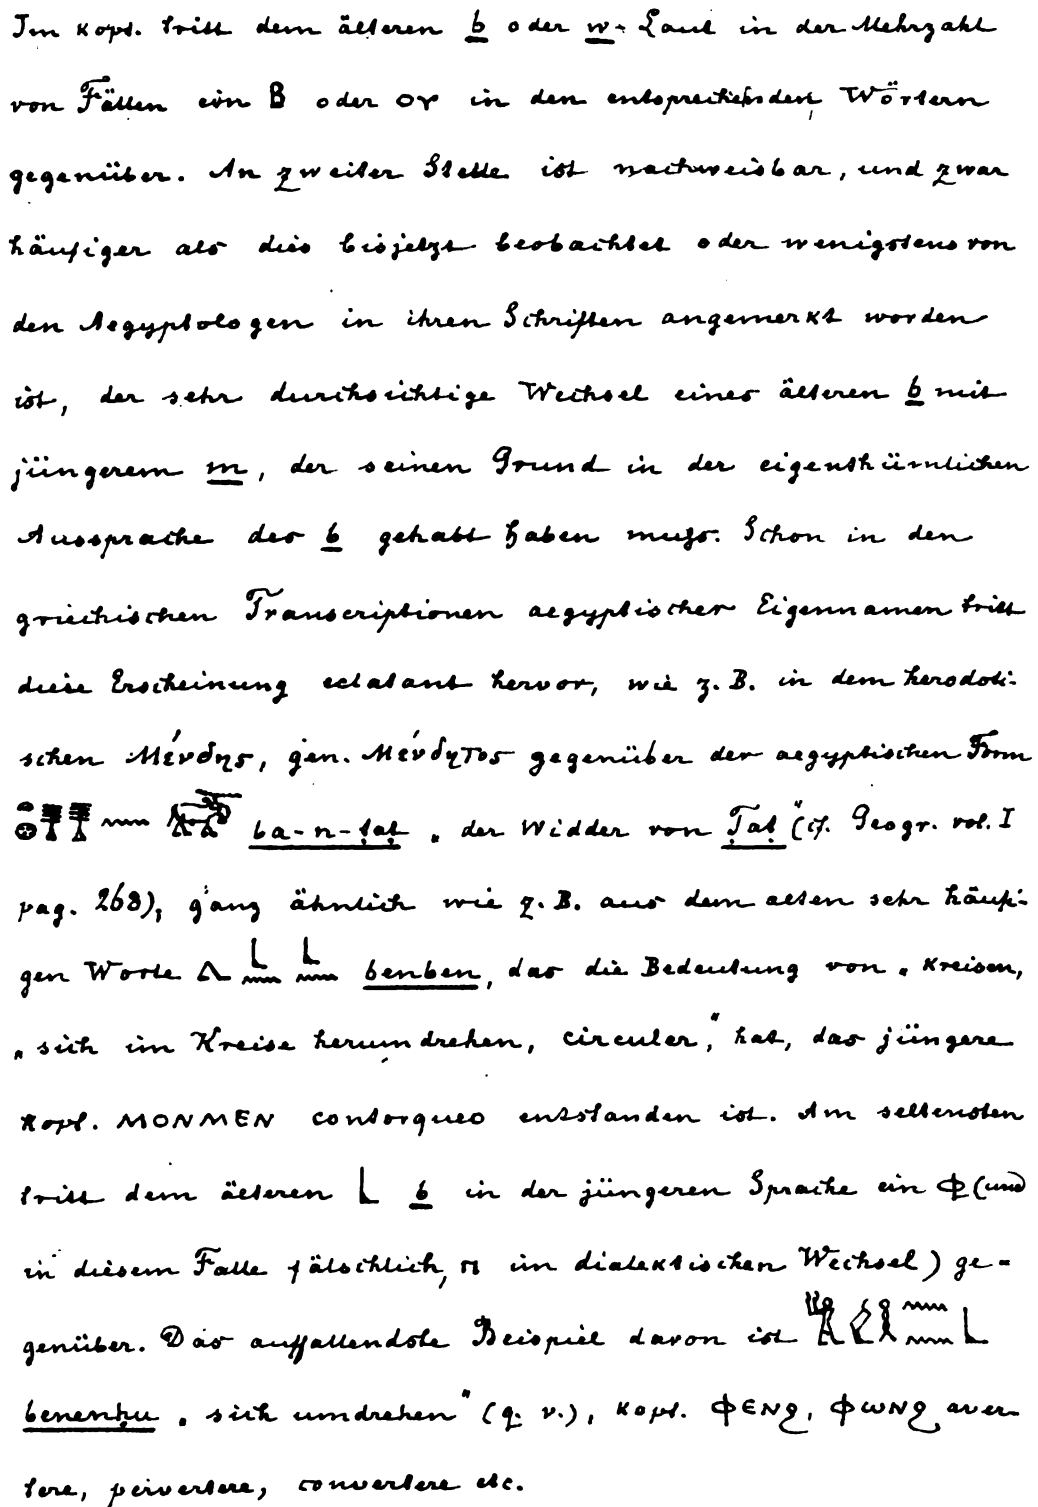 Im kopt. tritt dem älteren b oder w-Laut in der Mehrzahl
von Fällen ein B oder ΟΥ in den entsprechenden Wörtern
gegenüber. An zweiter Stelle ist nachweisbar, und zwar
häufiger als dies bisjetzt beobachtet oder wenigstens von
den Aegyptologen in ihren Schriften angemerkt worden
ist, der sehr durchsichtige Wechsel eines älteren b mit
jüngerem m, der seinen Grund in der eigenthümlichen
Aussprache des b gehabt haben muſs. Schon in den
griechischen Transcriptionen aegyptischer Eigennamen tritt
diese Erscheinung eclatant hervor, wie z. B. in dem herodoti-
schen Μένδης, gen. Μένδητος gegenüber der aegyptischen Form
ba-n-ṭaṭ „der Widder von Ṭaṭ“ (cf. Geogr. vol. I
pag. 268), ganz ähnlich wie z. B. aus dem alten sehr häufi-
gen Worte benben, das die Bedeutung von „kreisen,
„sich im Kreise herumdrehen, circuler,“ hat, das jüngere
kopt. ΜΟΝΜΕΝ contorqueo entstanden ist. Am seltensten
tritt dem älteren b in der jüngeren Sprache ein Φ (und
in diesem Falle fälschlich, π im dialektischen Wechsel) ge-
genüber. Das auffallendste Beispiel davon ist
benenḥu „sich umdrehen“ (q. v.), kopt. ϕⲉⲛϩ, ϕⲱⲛϩ aver-
tere, pervertere, convertere etc.